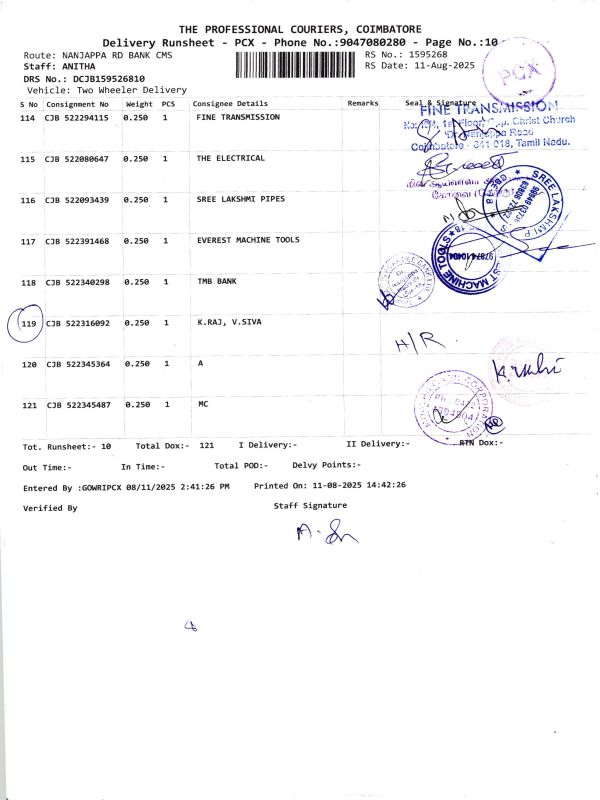 THE PROFESSIONAL COURIERS, COIMBATORE
Delivery Runsheet - PCX - Phone No.:9047080280 - Page No.:10
Route: NANJAPPA RD BANK CMS
RS No.: 1595268
Staff: ANITHA
RS Date: 11-Aug-2025
DRS No.: DCJB159526810
Vehicle: Two Wheeler Delivery
PCX
S No Consignment No Weight PCS Consignee Details Remarks Seal & Signature
114 CJB 522294115 0.250 1 FINE TRANSMISSION
FINE TRANSMISSION
Christ Church
Coimbatore - 641 018, Tamil Nadu.
115 CJB 522080647 0.250 1 THE ELECTRICAL
116 CJB 522093439 0.250 1 SREE LAKSHMI PIPES
SREE LAKSHMI P
117 CJB 522391468 0.250 1 EVEREST MACHINE TOOLS
ST MACHINE TOOLS
118 CJB 522340298 0.250 1 TMB BANK
119 CJB 522316092 0.250 1 K.RAJ, V.SIVA
H/R
120 CJB 522345364 0.250 1 A
121 CJB 522345487 0.250 1 MC
CORPORATION
Tot. Runsheet:- 10 Total Dox:- 121 I Delivery:- II Delivery:- RTN Dox:-
Out Time:- In Time:- Total POD:- Delvy Points:-
Entered By :GOWRIPCX 08/11/2025 2:41:26 PM Printed On: 11-08-2025 14:42:26
Verified By Staff Signature